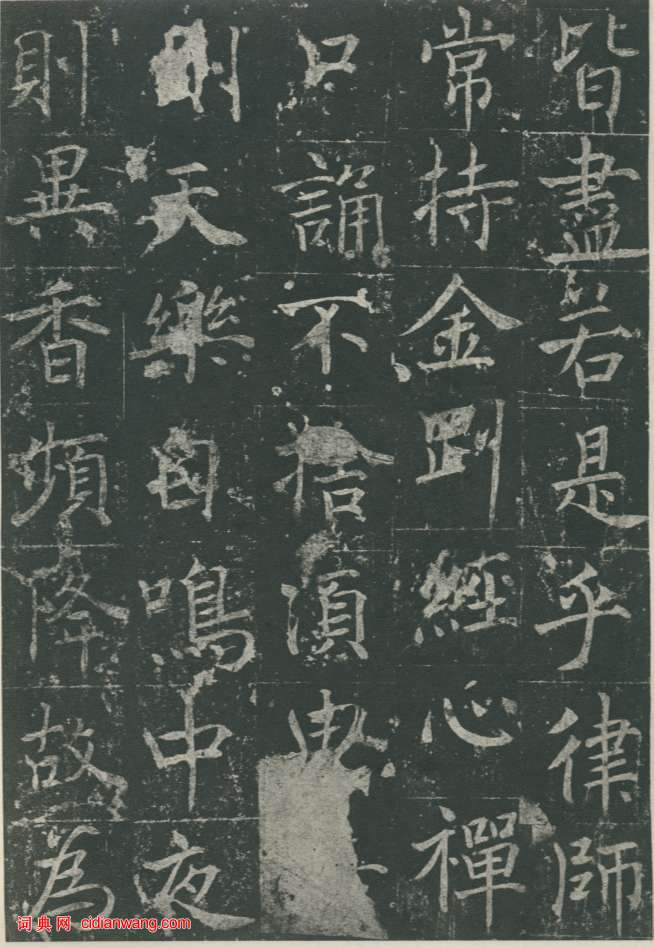 皆盡若是乎律師
常持金剛經心禪
口誦不捨湏臾
則天樂自鳴中夜
則異香頻降故為
词典网 cidianwang.com